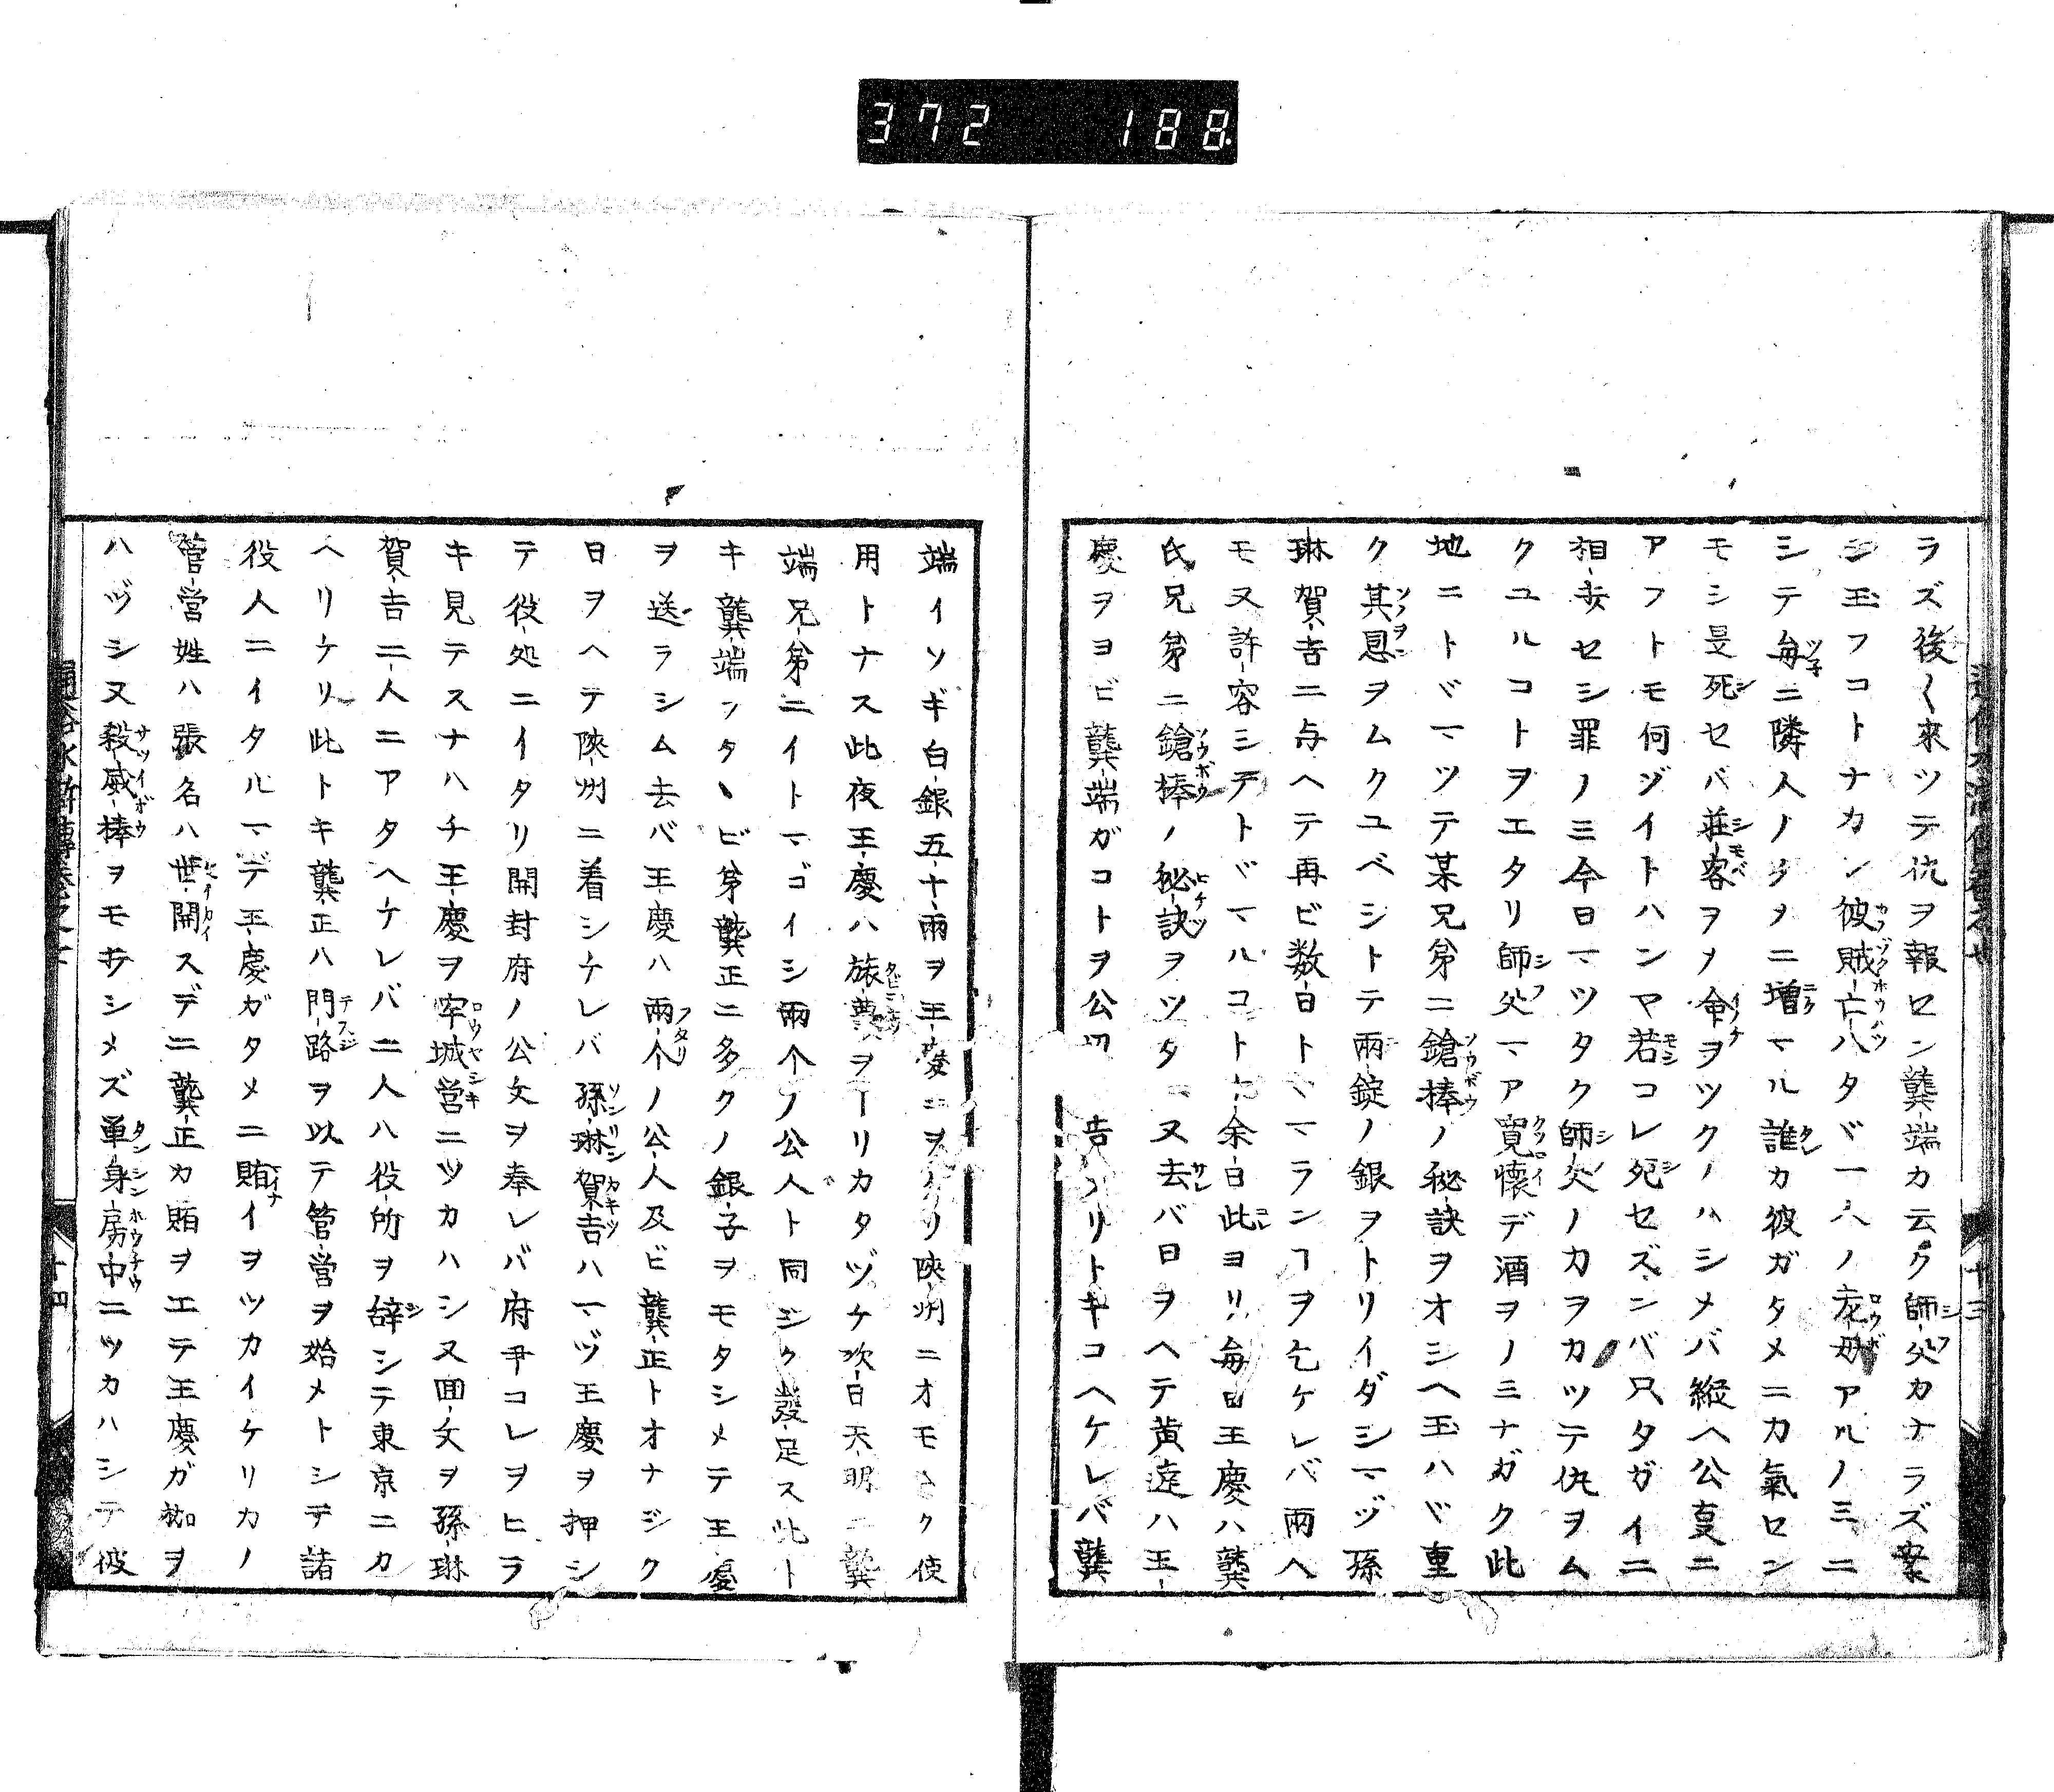 372 188
ラズ後〱來ツテ仇ヲ報ロン龔端カ云ク師父カナラズ案
ジ玉フコトナカン彼賊亡八タヾ一人ノ老母アルノミニ
シテ毎ニ隣人ノタメニ増マル誰カ彼ガタメニカ氣ロン
モシ是死セバ莊客ヲメ命ヲツクノハシメバ縦ヘ公㕝ニ
アフトモ何ゾイトハンヤ若コレ死セズンバ只タガイニ
相毒セシ罪ノミ今日マツタク師父ノ力ヲカツテ仇ヲム
クユルコトヲエタリ師父マア寛懷デ酒ヲノミナガク此
地ニトヾマツテ某兄弟ニ鎗棒ノ秘訣ヲオシヘ玉ハヾ重
ク其恩ヲムクユベシトテ兩錠ノ銀ヲトリイダシマヅ孫
琳賀吉ニ与ヘテ再ビ数日トヾマランヿヲ乞ケレバ兩人
モ又許容シテトヾマルコト十余日此ヨリ毎日王慶ハ龔
氏兄弟ニ鎗棒ノ秘訣ヲツタヘ又去バ日ヲヘテ黄達ハ王
慶ヲヨビ龔端ガコトヲ公 告 リトキコヘケレバ龔
端イソギ白銀五十兩ヲ王慶ニヲクリ陝州ニオモムク使
用トナス此夜王慶ハ旅 ヲ リカタヅケ次日天明ニ龔
端兄弟ニイトマゴイシ兩个ノ公人ト同ジク發足ス此ト
キ龔端フタヽビ弟龔正ニ多クノ銀子ヲモタシメテ王慶
ヲ送ラシム去バ王慶ハ兩个ノ公人及ビ龔正トオナジク
日ヲヘテ陝州ニ着シケレバ孫琳賀吉ハマヅ王慶ヲ押シ
テ役処ニイタリ開封府ノ公文ヲ奉レバ府尹コレヲヒラ
キ見テスナハチ王慶ヲ牢城営ニツカハシ又回文ヲ孫琳
賀吉二人ニアタヘケレバ二人ハ役所ヲ辞シテ東京ニカ
ヘリケリ此トキ龔正ハ門路ヲ以テ管営ヲ始メトシテ諸
役人ニイタルマデ王慶ガタメニ賄イヲツカイケリカノ
管営姓ハ張名ハ世開スデニ龔正カ賂ヲエテ王慶ガ枷ヲ
ハヅシ又殺威棒ヲモ奔シメズ單身房中ニツカハシテ彼
十三
十四